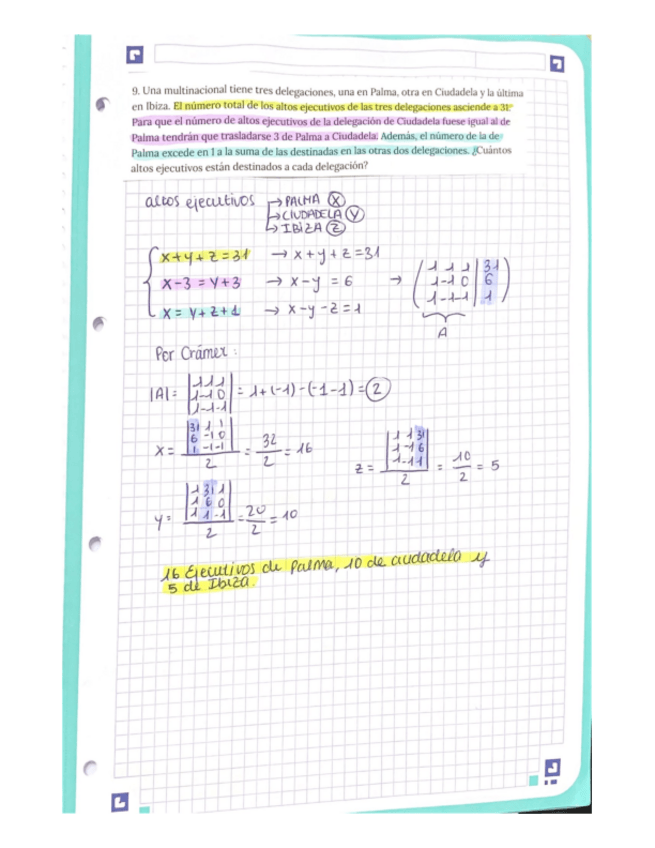 9. Una multinacional tiene tres delegaciones, una en Palma, otra en Ciudadela y la última
en Ibiza. El número total de los altos ejecutivos de las tres delegaciones asciende a 31.
Para que el número de altos ejecutivos de la delegación de Ciudadela fuese igual al de
Palma tendrán que trasladarse 3 de Palma a Ciudadela. Además, el número de la de
Palma excede en 1 a la suma de las destinadas en las otras dos delegaciones. ¿Cuántos
altos ejecutivos están destinados a cada delegación?
altos ejecutivos → PALMA (X)
→ CIUDADELA (Y)
→ IBIZA (Z)
x+y+z=31 → x+y+z=31
x-3=y+3 → x-y=6 →
x=y+z+1 → x-y-z=1
1 1 1 | 31
1 -1 0 | 6
1 -1 -1 | 1
A
Por Crámer:
|A| = |1 1 1
1 -1 0
1 -1 -1| = 1+(-1)-(-1-1) = 2
x = |31 1 1
6 -1 0
1 -1 -1| / 2 = 32/2 = 16
z = |1 1 31
1 -1 6
1 -1 1| / 2 = 10/2 = 5
y = |1 31 1
1 6 0
1 1 -1| / 2 = 20/2 = 10
16 Ejecutivos de Palma, 10 de ciudadela y
5 de Ibiza.